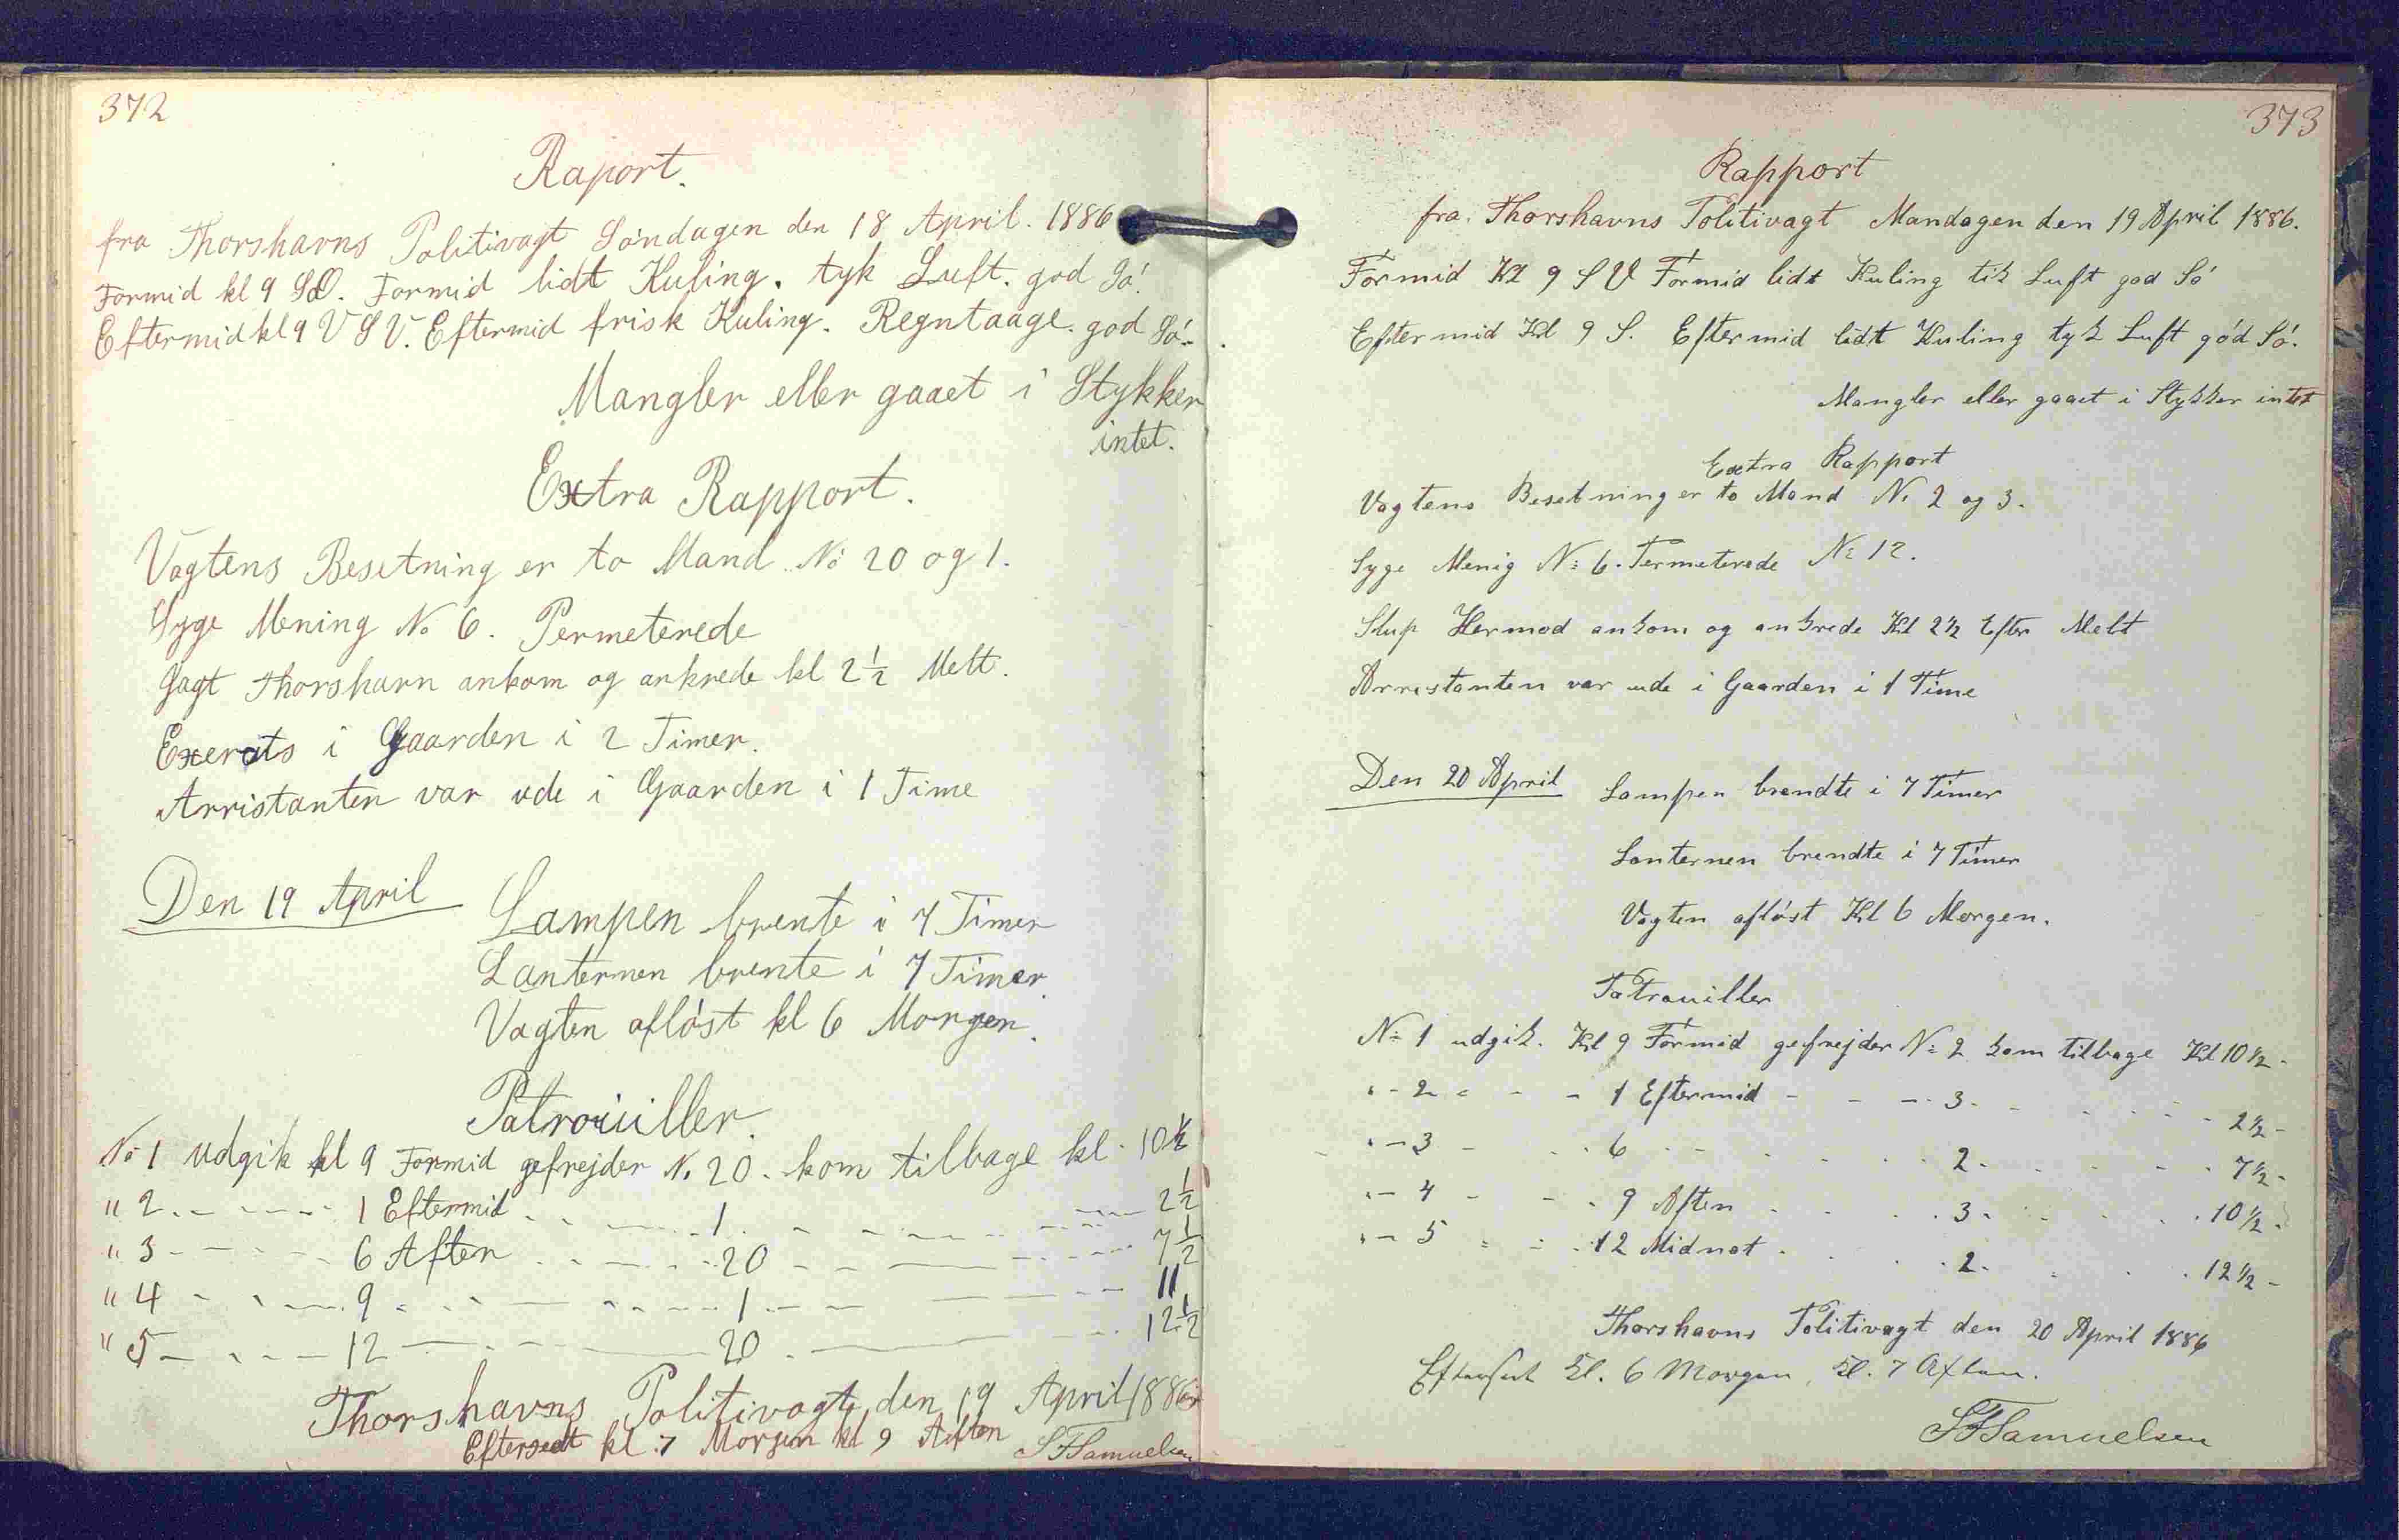 372
Raport.
fra Thorshavns Politivagt Søndagen den 18 April. 1886
Formid kl 9 SO. Formid lidt Kuling. tyk Luft. god Só.
Eftermid kl 9 V S V. Eftermid frisk Kuling. Regntaage. god Só.
Mangler eller gaaet i Stykker
intet.
Extra Rapport.
Vagtens Besetning er to Mand No 20 og 1.
Syge Mening No 6. Permeterede
Jagt Thorshavn ankom og ankrede kl 2 1/2 Mett.
Exerats i Gaarden i 2 Timer.
Arristanten var ude i Gaarden i 1 Time
Den 19 April Lampen brente i 7 Timer
Lanternen brente i 7 Timer.
Vagten afløst kl 6 Morgen.
Patrouiller.
No 1 udgik kl 9 Formid gefrejder No 20. kom tilbage kl 10 1/2
" 2 - - - 1 Eftermid - - - 1 - - - 2 1/2
" 3 - - - 6 Aften - - - 20 - - - 7 1/2
" 4 - - - 9 - - - 1 - - - 11
" 5 - - - 12 - - - 20 - - - 12 1/2
Thorshavns Politivagt den 19 April 1886
Efterseet kl. 7 Morgen kl 9 Aften SFSamuelsen
373
Rapport
fra Thorshavns Politivagt Mandagen den 19 April 1886.
Formid Kl 9 S V Formid lidt Kuling tik Luft god Só
Eftermid Kl 9 S. Eftermid lidt Kuling tyk Luft gód Só.
Mangler eller gaaet i Stykker intet
Extra Rapport
Vagtens Besetning er to Mand No 2 og 3.
Syge Menig No 6. Permeterede No 12.
Slup Hermod ankom og ankrede Kl 2 1/2 Efter Melt
Arrestanten var ude i Gaarden i 1 Time
Den 20 April Lampen brendte i 7 Timer
Lanternen brendte i 7 Timer
Vagten afløst Kl 6 Morgen.
Patrouiller
No 1 udgik. Kl 9 Formid gefrejder No 2 kom tilbage Kl 10 1/2 -
" - 2 - - - 1 Eftermid - - - 3 - - - 2 1/2 -
" - 3 - - - 6 - - - 2 - - - 7 1/2 -
" - 4 - - - 9 Aften - - - 3 - - - 10 1/2 -
" - 5 - - - 12 Midnat - - - 2 - - - 12 1/2 -
Thorshavns Politivagt den 20 April 1886
Efterset kl. 6 Morgen, kl. 7 Aften.
SFSamuelsen